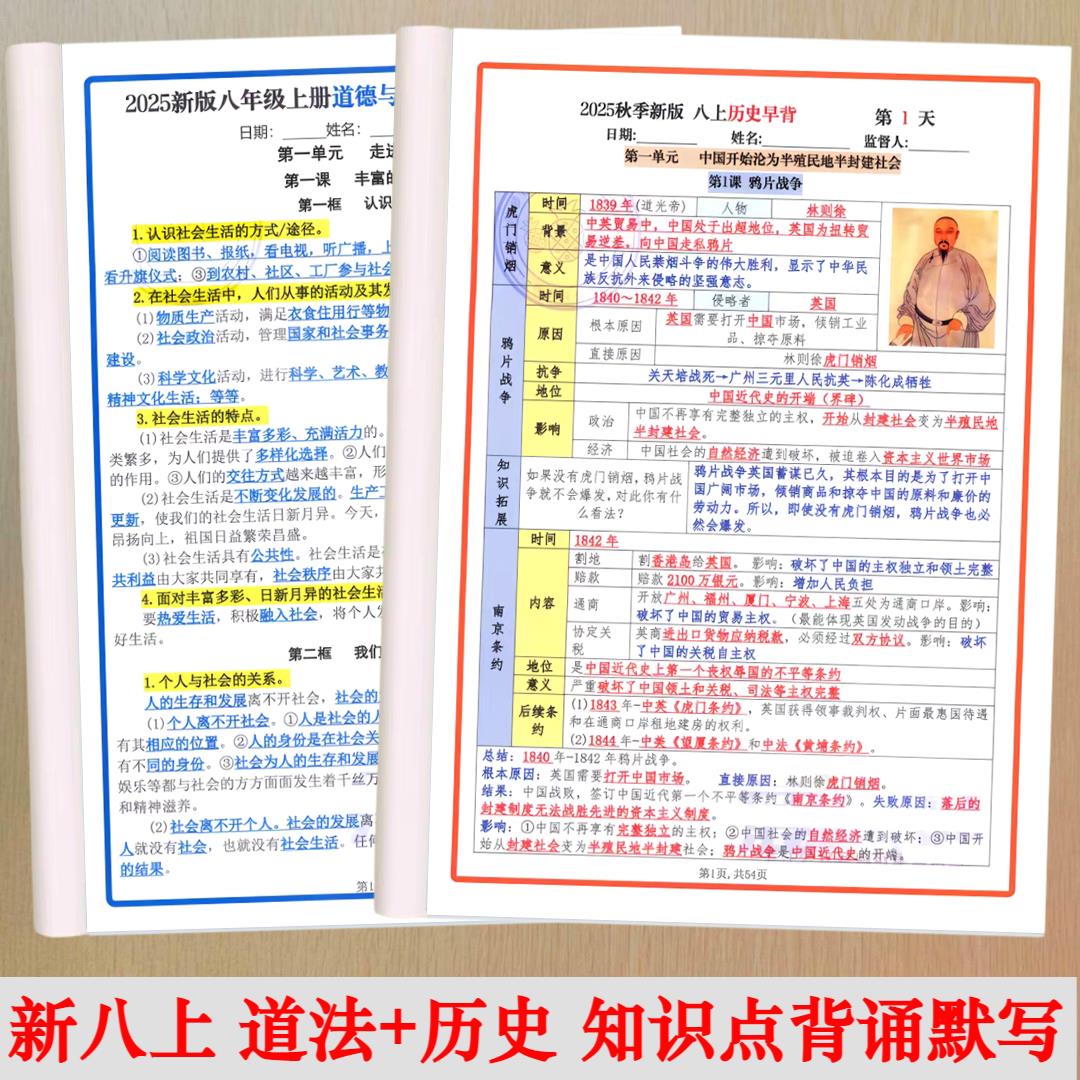 2025新版八年级上册道德与
日期：______姓名：
第一单元 走进
第一课 丰富的
第一框 认识
1.认识社会生活的方式/途径。
①阅读图书、报纸，看电视，听广播，上
看升旗仪式；③到农村、社区、工厂参与社会
2.在社会生活中，人们从事的活动及其发
(1)物质生产活动，满足衣食住用行等物
(2)社会政治活动，管理国家和社会事务
建设。
(3)科学文化活动，进行科学、艺术、教
精神文化生活；等等。
3.社会生活的特点。
(1)社会生活是丰富多彩、充满活力的。
类繁多，为人们提供了多样化选择。②人们
的作用。③人们的交往方式越来越丰富，形
(2)社会生活是不断变化发展的。生产工
更新，使我们的社会生活日新月异。今天，
昂扬向上，祖国日益繁荣昌盛。
(3)社会生活具有公共性。社会生活是
共利益由大家共同享有，社会秩序由大家共
4.面对丰富多彩、日新月异的社会生活
要热爱生活，积极融入社会，将个人发
好生活。
第二框 我们
1.个人与社会的关系。
人的生存和发展离不开社会，社会的
(1)个人离不开社会。①人是社会的人
有其相应的位置。②人的身份是在社会关
有不同的身份。③社会为人的生存和发展
娱乐等都与社会的方方面面发生着千丝万
和精神滋养。
(2)社会离不开个人。社会的发展离
人就没有社会，也就没有社会生活。任何
的结果。
第1
2025秋季新版 八上历史早背 第 1 天
日期:________ 姓名:____________ 监督人:________
第一单元 中国开始沦为半殖民地半封建社会
第1课 鸦片战争
虎门销烟
时间 1839年(道光帝) 人物 林则徐
背景 中英贸易中，中国处于出超地位，英国为扭转贸
易逆差，向中国走私鸦片
意义 是中国人民禁烟斗争的伟大胜利，显示了中华民
族反抗外来侵略的坚强意志。
鸦片战争
时间 1840～1842年 侵略者 英国
原因 根本原因 英国需要打开中国市场，倾销工业
品、掠夺原料
直接原因 林则徐虎门销烟
抗争 关天培战死→广州三元里人民抗英→陈化成牺牲
地位 中国近代史的开端（界碑）
影响 政治 中国不再享有完整独立的主权，开始从封建社会变为半殖民地
半封建社会。
经济 中国社会的自然经济遭到破坏，被迫卷入资本主义世界市场
知识拓展
如果没有虎门销烟，鸦片战
争就不会爆发，对此你有什
么看法？
鸦片战争英国蓄谋已久，其根本目的是为了打开中
国广阔市场，倾销商品和掠夺中国的原料和廉价的
劳动力。所以，即使没有虎门销烟，鸦片战争也必
然会爆发。
南京条约
时间 1842年
内容 割地 割香港岛给英国。影响：破坏了中国的主权独立和领土完整
赔款 赔款2100万银元。影响：增加人民负担
通商 开放广州、福州、厦门、宁波、上海五处为通商口岸。影响：
破坏了中国的贸易主权。（最能体现英国发动战争的目的）
协定关税 英商进出口货物应纳税款，必须经过双方协议。影响：破坏
了中国的关税自主权
地位 是中国近代史上第一个丧权辱国的不平等条约
意义 严重破坏了中国领土和关税、司法等主权完整
后续条约 (1)1843年-中英《虎门条约》，英国获得领事裁判权、片面最惠国待遇
和在通商口岸租地建房的权利。
(2)1844年-中美《望厦条约》和中法《黄埔条约》。
总结：1840年-1842年鸦片战争。
根本原因：英国需要打开中国市场。 直接原因：林则徐虎门销烟。
结果：中国战败，签订中国近代第一个不平等条约《南京条约》。失败原因：落后的
封建制度无法战胜先进的资本主义制度。
影响：①中国不再享有完整独立的主权；②中国社会的自然经济遭到破坏；③中国开
始从封建社会变为半殖民地半封建社会；鸦片战争是中国近代史的开端。
第1页，共54页
新八上 道法+历史 知识点背诵默写